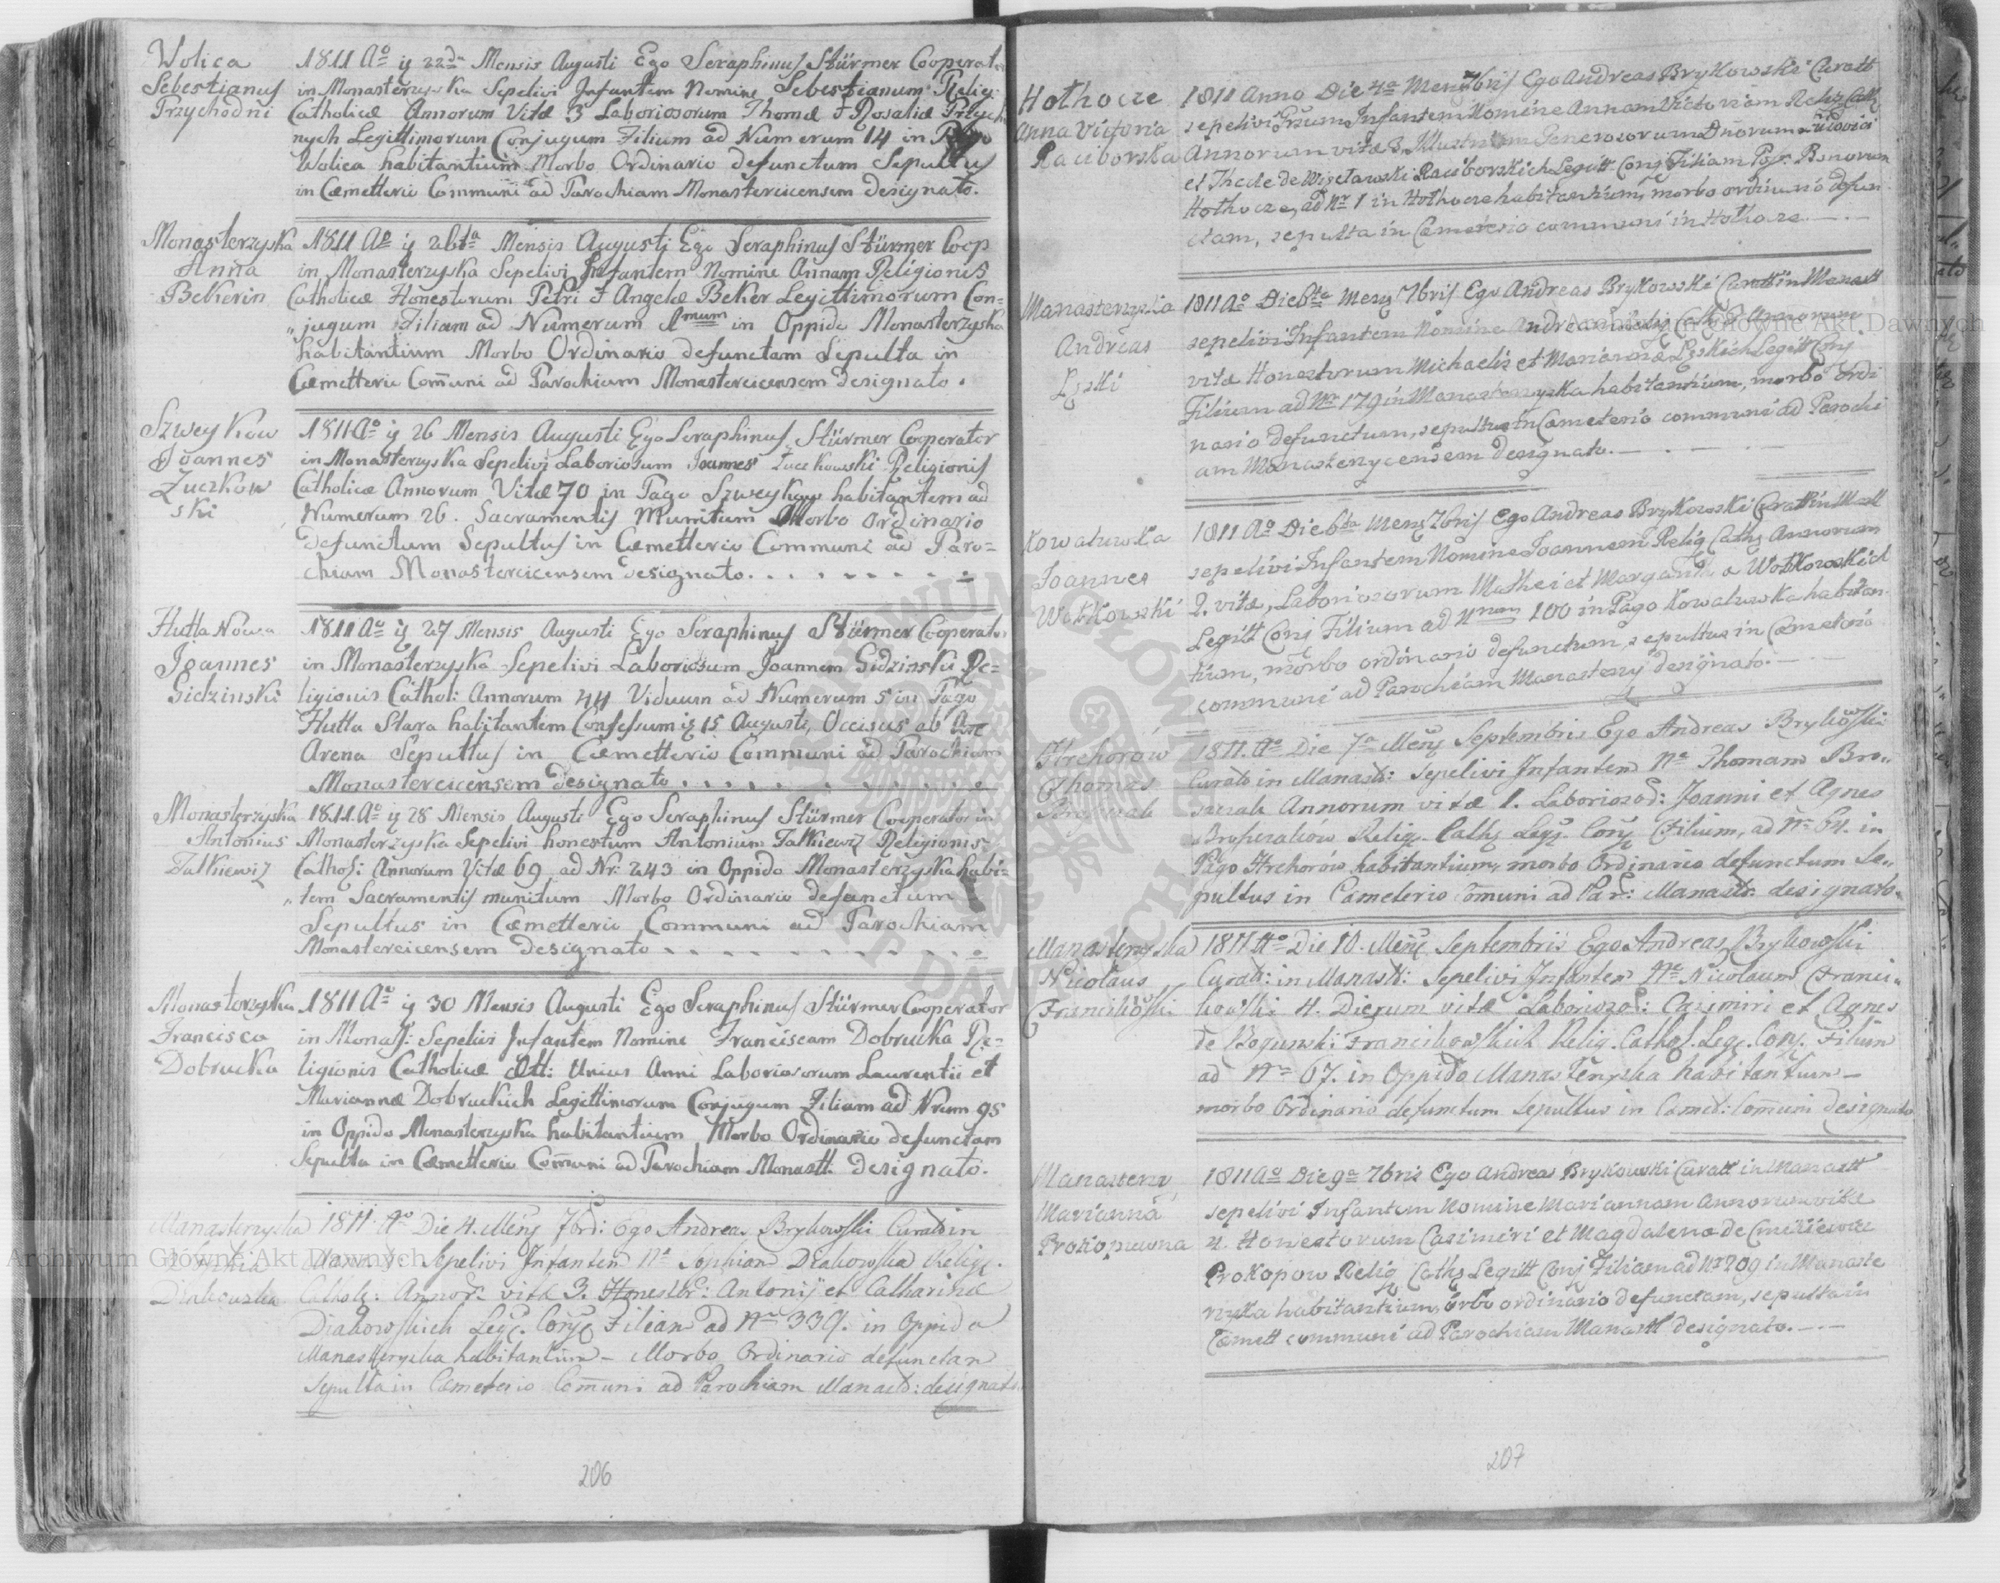 Wolica
Sebestianus
Przychodni
1811 Ao ij 22da Mensis Augusti Ego Seraphinus Stürmer Cooperat
in Monasterzyska Sepelivi Infantem Nomine Sebestianum Relig
Catholicæ Annorum Vitæ 3 Laboriosorum Thomæ & Rosaliæ Przych
nych Legittimorum Conjugum Filium ad Numerum 14 in Pago
Wolica habitantium Morbo Ordinario defunctum Sepultus
in Cæmetterio Communi ad Parochiam Monastercicensem designato.
Monasterzyska
Anna
Bekerin
1811 Ao ij 26ta Mensis Augusti Ego Seraphinus Stürmer Coop
in Monasterzyska Sepelivi Infantem Nomine Annam Religionis
Catholicæ Honestorum Petri & Angelæ Beker Legittimorum Con-
„jugum Filiam ad Numerum 1mum in Oppido Monasterzyska
habitantium Morbo Ordinario defunctam Sepulta in
Cæmetterio Com̄uni ad Parochiam Monastercicensem designato.
Szweykow
Joannes
Zuczkow
ski
1811 Ao ij 26 Mensis Augusti Ego Seraphinus Stürmer Cooperator
in Monasterzyska Sepelivi Laboriosum Joannes Zuczkowski Religionis
Catholicæ Annorum Vitæ 70 in Pago Szweykow habitantem ad
Numerum 26. Sacramentis Munitum Morbo Ordinario
defunctum Sepultus in Cæmetterio Communi ad Paro=
chiam Monastercicensem designato.
Hutta Nowa
Joannes
Gidzinski
1811 Ao ij 27 Mensis Augusti Ego Seraphinus Stürmer Cooperator
in Monasterzyska Sepelivi Laboriosum Joannem Gidzinski Re=
ligionis Cathol: Annorum 44 Viduum ad Numerum 5 in Pago
Hutta Stara habitantem Confessum ij 15 Augusti, Occisus ab
Arena Sepultus in Cæmetterio Communi ad Parochiam
Monastercicensem designato
Monasterzyska
Antonius
Falkiewiz
1811 Ao ij 28 Mensis Augusti Ego Seraphinus Stürmer Cooperator in
Monasterzyska Sepelivi honestum Antonium Falkiewiz Religionis
Cathol: Annorum Vitæ 69 ad Nr: 243 in Oppido Monasterzyska habi-
„tem Sacramentis munitum Morbo Ordinario defunctum
Sepultus in Cæmetterio Communi ad Parochiam
Monastercicensem designato
Monasterzyska
Francisca
Dobrucka
1811 Ao ij 30 Mensis Augusti Ego Seraphinus Stürmer Cooperator
in Monast: Sepelivi Infantem Nomine Franciscam Dobrucka Re=
ligionis Catholicæ Ætt: Unius Anni Laboriosorum Laurentii et
Mariannæ Dobruckich Legittimorum Conjugum Filiam ad Nrum 95
in Oppido Monasterzyska habitantium Morbo Ordinario defunctam
Sepulta in Cæmetterio Com̄uni ad Parochiam Monastt. designato.
Manasterzyska
Sophia
Diakowska
1811 Ao Die 4. Mens 7bri: Ego Andreas Brykowski Curat in
Manast: Sepelivi Infantem Ne Sophiam Diakowska Relig.
Cathol: Annor. vitæ 3. Honestor: Antonij et Catharinæ
Diakowskich Leg. Conj. Filiam ad Nrum 339. in Oppido
Manasterzyska habitantium - Morbo Ordinario defunctam
Sepulta in Cæmeterio Com̄uni ad Parochiam Manast: designato
206
Hothocze
Anna Victoria
Raciborska
1811 Anno Die 4ta Mens 7bris Ego Andreas Brykowski Curatt
sepelivi Infantem Nomine Annam Victoriam Relig Cath
Annorum vitæ 3 Illustrium Generosorum Dnorum Ludovici
et Theclæ de Raciborskich Legitt Conj Filiam Poss: Bonorum
Hothocze, ad Nr 1 in Hothocze habitantium, morbo ordinario defun
ctam, sepulta in Cæmeterio communi in Hothocze.
Manasterzyska
Andreas
Lyski
1811 Ao Die 6ta Mens 7bris Ego Andreas Brykowski Curatt in Manastt
sepelivi Infantem Nomine Andream Relig Cath Annorum
vitæ Honestorum Michaelis et Mariannæ Lyskich Legitt Conj
Filium ad Nr 179 in Manasterzyska habitantium, morbo ordi
nario defunctum, sepultus in Cæmeterio communi ad Parochi
am Monasterzycensem designato.
Kowalowka
Joannes
Wołkowski
1811 Ao Die 6ta Mens 7bris Ego Andreas Brykowski Curatt in Manastt
sepelivi Infantem Nomine Joannem Relig Cath Annorum
2. vitæ, Laboriosorum Mathei et Wołkowskich
Legitt Conj Filium ad Nrum 100 in Pago Kowalowka habitan
tium, morbo ordinario defunctum, sepultus in Cæmeterio
communi ad Parochiam Manasterz designato.
Hrehorow
Thomas
1811. Ao Die 7a Mens Septembris Ego Andreas Brykowski
Curato in Manast: Sepelivi Infantem Ne Thomam Bro-
Annorum vitæ 1. Laboriosor: Joanni et Agnes
Relig. Cath Leg. Conj Filium, ad Nr 64. in
Pago Hrehorow habitantium, morbo Ordinario defunctum Se-
pultus in Cæmeterio Com̄uni ad Par: Manast: designato.
Manasterzyska
Nicolaus
Francikowski
1811 Ao Die 10. Mens Septembris Ego Andreas Brykowski
Curat: in Manast: Sepelivi Infantem Ne Nicolaum Franci-
kowski 4. Dierum vitæ Laborioso: Casimiri et Agnes
de Bogunski Francikowskich Relig. Cathol. Leg. Conj. Filium
ad Nrum 67. in Oppido Manasterzyska habitantium -
morbo Ordinario defunctum Sepultus in Cæmet: Com̄uni designato
Manasterz
Marianna
Prokopiewna
1811 Ao Die 9a 7bris Ego Andreas Brykowski Curatt in Manastt
sepelivi Infantem Nomine Mariannam Annorum vitæ
4. Honestorum Casimiri et Magdalenæ de
Prokopow Relig Cath Legitt Conj Filiam ad Nr 209 in Manaste
rzyska habitantium, orbo ordinario defunctam, sepulta in
Cæmett communi ad Parochiam Manastt designato.
207
Archiwum Główne Akt Dawnych
Archiwum Główne Akt Dawnych
ARCHIWUM GŁÓWNE AKT DAWNYCH